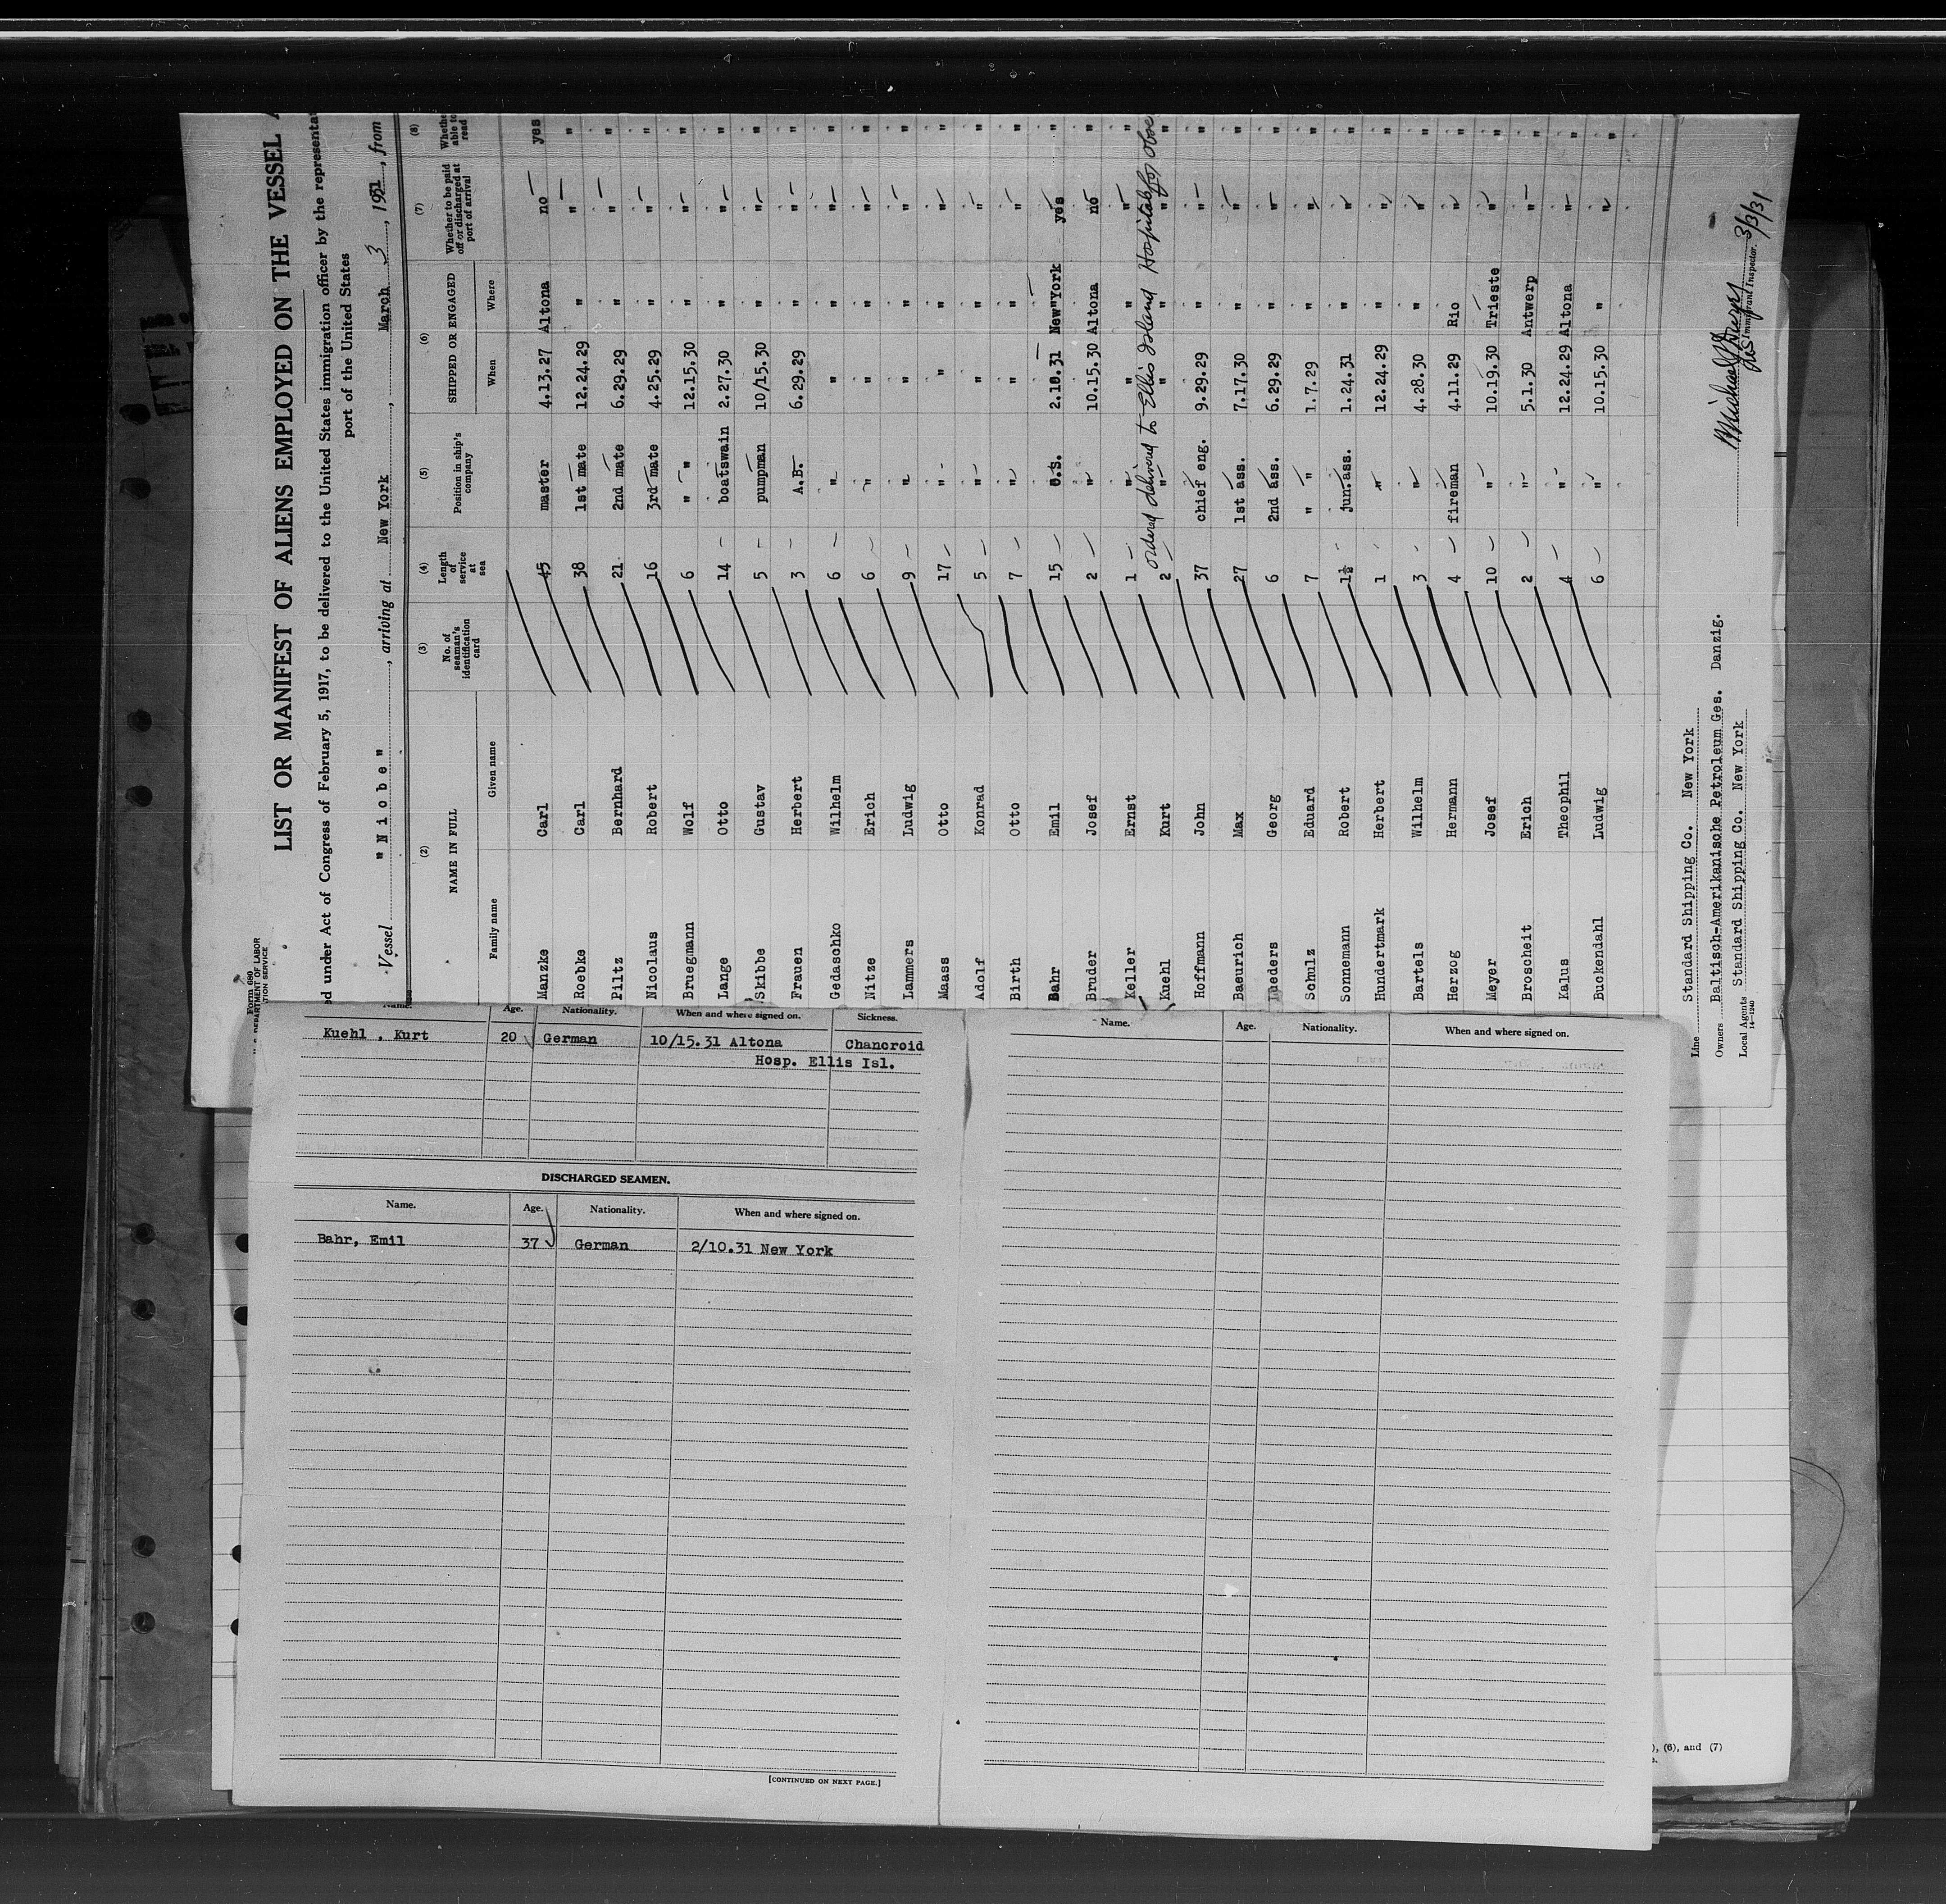 Form 680
DEPARTMENT OF LABOR
TION SERVICE
LIST OR MANIFEST OF ALIENS EMPLOYED ON THE VESSEL A
d under Act of Congress of February 5, 1917, to be delivered to the United States immigration officer by the representat
port of the United States
Vessel "Niobe", arriving at New York, March 3, 1931, from
(2) (3) (4) (5) (6) (7) (8)
NAME IN FULL No. of seaman's identification card Length of service at sea Position in ship's company SHIPPED OR ENGAGED Whether to be paid off or discharged at port of arrival Whethe able to read
Family name Given name When Where
Manzke Carl 45 master 4.13.27 Altona no yes
Roebke Carl 38 1st mate 12.24.29 " " "
Piltz Bernhard 21 2nd mate 6.29.29 " " "
Nicolaus Robert 16 3rd mate 4.25.29 " " "
Bruegmann Wolf 6 " " 12.15.30 " " "
Lange Otto 14 boatswain 2.27.30 " " "
Skibbe Gustav 5 pumpman 10/15.30 " " "
Frauen Herbert 3 A.B. 6.29.29 " " "
Gedaschko Wilhelm 6 " " " " "
Nitze Erich 6 " " " " "
Lammers Ludwig 9 " " " " "
Maass Otto 17 " " " " "
Adolf Konrad 5 " " " "
Birth Otto 7 " " " " "
Bahr Emil 15 O.S. 2.10.31 New"York yes "
Bruder Josef 2 " 10.15.30 Altona no "
Keller Ernst 1 " " " " "
ordered delivered to Ellis Island Hospital for obse
Kuehl Kurt 2 " " " " "
Hoffmann John 37 chief eng. 9.29.29 " " "
Baeurich Max 27 1st ass. 7.17.30 " " "
Lueders Georg 6 2nd ass. 6.29.29 " " "
Schulz Eduard 7 " " 1.7.29 " " "
Sonnemann Robert 1½ jun.ass. 1.24.31 " " "
Hundertmark Herbert 1 " 12.24.29 " " "
Bartels Wilhelm 3 " 4.28.30 " " "
Herzog Hermann 4 fireman 4.11.29 Rio " "
Meyer Josef 10 " 10.19.30 Trieste " "
Broscheit Erich 2 " 5.1.30 Antwerp " "
Kalus Theophil 4 " 12.24.29 Altona " "
Buckendahl Ludwig 6 " 10.15.30 " " "
Line Standard Shipping Co. New York
Owners Baltisch-Amerikanische Petroleum Ges. Danzig.
Local Agents Standard Shipping Co. New York
14—1240
Michael 3/3/31
Immigrant Inspector.
Name. Age. Nationality. When and where signed on. Sickness.
Kuehl , Kurt 20 German 10/15.31 Altona Chancroid
Hosp. Ellis Isl.
DISCHARGED SEAMEN.
Name. Age. Nationality. When and where signed on.
Bahr, Emil 37 German 2/10.31 New York
[CONTINUED ON NEXT PAGE.]
Name. Age. Nationality. When and where signed on.
), (6), and (7)